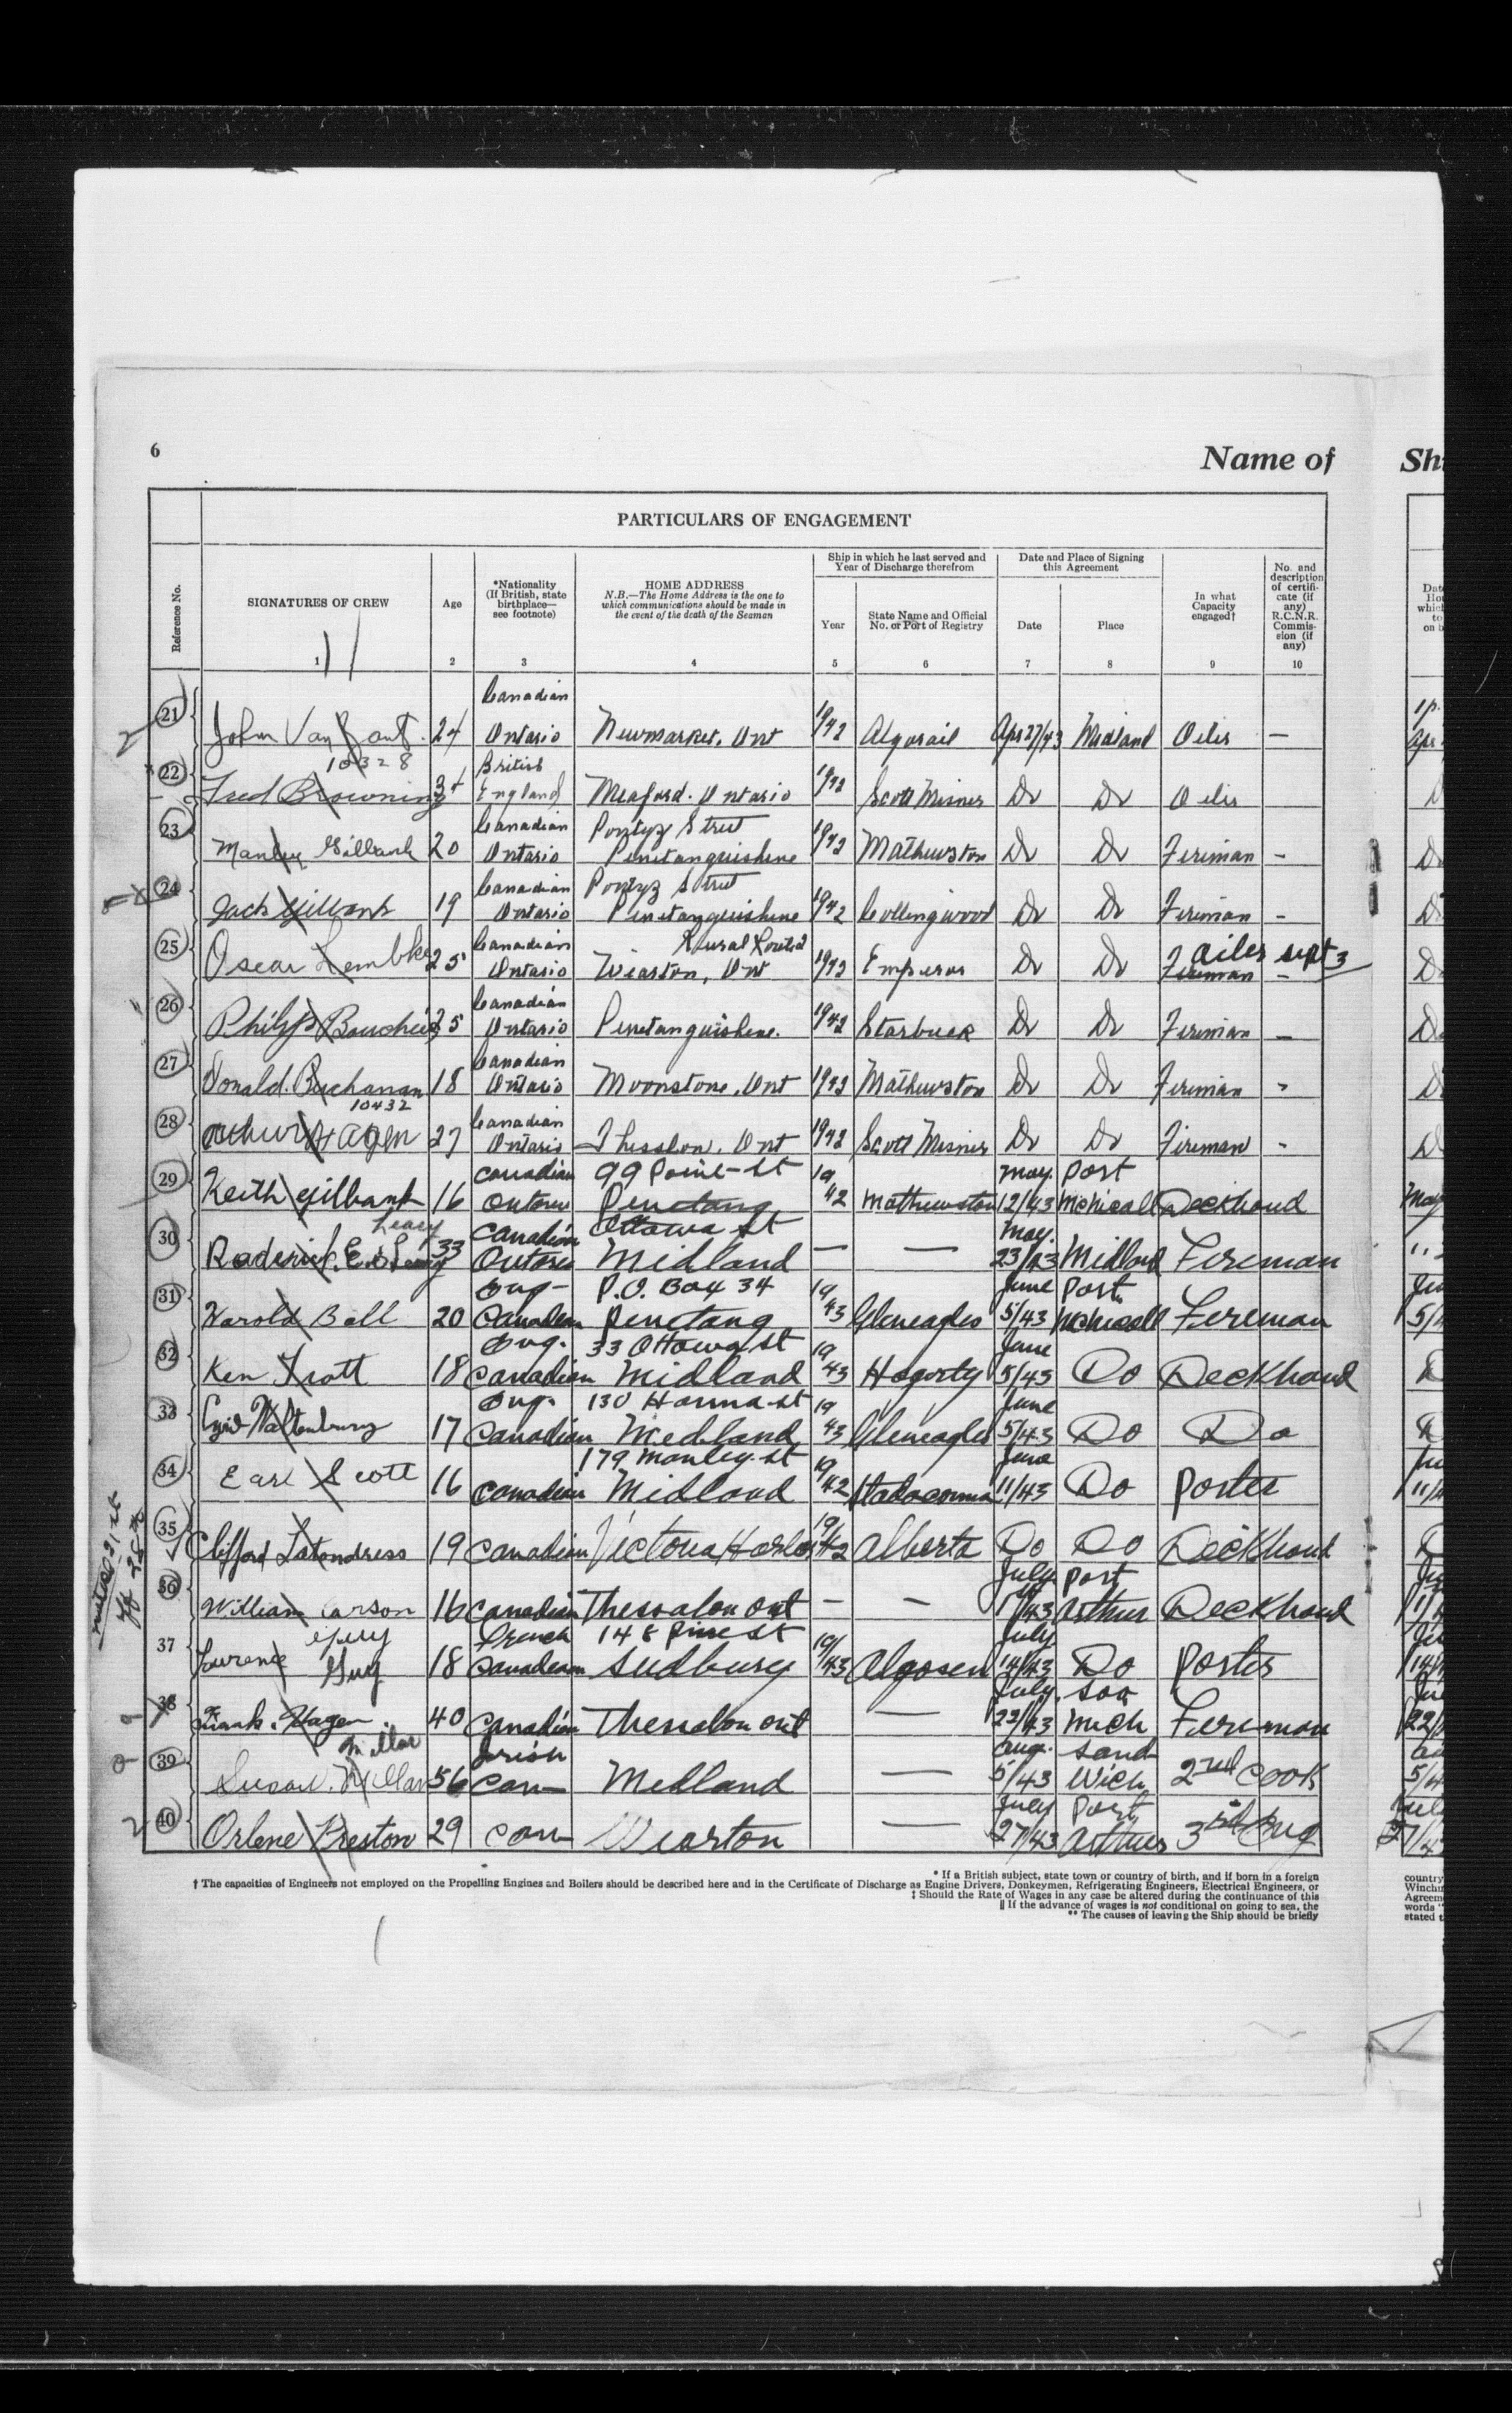 6
Name of
Shi
PARTICULARS OF ENGAGEMENT
Reference No.
SIGNATURES OF CREW
1
Age
2
*Nationality
(If British, state
birthplace—
see footnote)
3
HOME ADDRESS
N.B.—The Home Address is the one to
which communications should be made in
the event of the death of the Seaman
4
Ship in which he last served and
Year of Discharge therefrom
Year
5
State Name and Official
No. or Port of Registry
6
Date and Place of Signing
this Agreement
Date
7
Place
8
In what
Capacity
engaged†
9
No. and
description
of certifi-
cate (if
any)
R.C.N.R.
Commis-
sion (if
any)
10
Canadian
21 John Van Zant. 24 Ontario Newmarket, Ont 1942 Algorail Apr 27/43 Midland Oiler —
10328 British
22 Fred Browning 34 England Meaford. Ontario 1942 Scott Misner Do Do Oiler
Canadian Street
23 Manley Gilbank 20 Ontario Penetanguishene 1942 Mathewston Do Do Fireman -
Canadian Street
24 Jack Gilbank 19 Ontario Penetanguishene 1942 Collingwood Do Do Fireman -
Canadian Rural Route 2 oiler sept 3
25 Oscar Lembke 25 Ontario Wiarton, Ont 1942 Emperor Do Do Fireman -
Canadian
26 Philip 25 Ontario Penetanguishene. 1942 Starbuck Do Do Fireman —
Canadian
27 Donald. Buchanan 18 Ontario Moonstone, Ont 1942 Mathewston Do Do Fireman -
10432 Canadian
28 Arthur Hagen 27 Ontario Thessalon, Ont 1942 Scott Misner Do Do Fireman -
Canadian 99 Point-St 19 May. Port
29 Keith Gilbank 16 Ontario Penetang 42 Mathewston 12/43 McNicoll Deckhand
Leary Canadian Ottawa St May.
30 Roderick. E. 33 Ontario Midland — — 23/43 Midland Fireman
Eng- P.O. Box 34 19 June Port
31 Harold Ball 20 Canadian Penetang 43 Gleneagles 5/43 McNicoll Fireman
Eng. 33 Ottawa St 19 June
32 Ken Trott 18 Canadian Midland 43 Hagarty 5/43 Do Deckhand
Eng. 130 St 19 June
33 Waltenbury 17 Canadian Midland 43 Gleneagles 5/43 Do Do
179 Manley. St 19 June
34 Earl Scott 16 Canadian Midland 42 Stadacona 11/43 Do Porter
35 Clifford Latondress 19 Canadian Victoria Harbor 19/42 Alberta Do Do Deckhand
July Port
36 William Carson 16 Canadian Thessalon Ont — — 43 Arthur Deckhand
French 148 Pine St 19/ July
37 Lawrence Guy 18 Canadian Sudbury 43 Algosen 14/43 Do Porter
July. Soo
38 Frank. Hagen. 40 Canadian Thessalon Ont — 22/43 Mich Fireman
Millar Irish Aug. Sand
39 Susan. Millar 56 Can— Midland — 5/43 Wich 2nd Cook
July Port
40 Orlene Preston 29 Can Wiarton — 27/43 Arthur 3rd Eng
* If a British subject, state town or country of birth, and if born in a foreign
† The capacities of Engineers not employed on the Propelling Engines and Boilers should be described here and in the Certificate of Discharge as Engine Drivers, Donkeymen, Refrigerating Engineers, Electrical Engineers, or
‡ Should the Rate of Wages in any case be altered during the continuance of this
‖ If the advance of wages is not conditional on going to sea, the
** The causes of leaving the Ship should be briefly
country
Agreem
words "
stated t